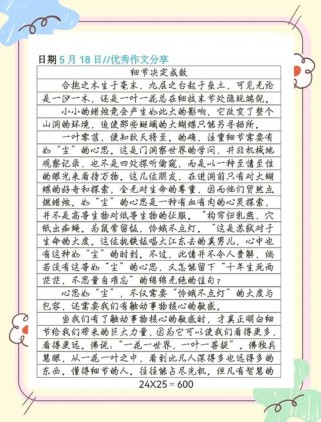 日期5月18日//优秀作文分享
细节决定成败
合抱之木生于毫末，九层之台起于垒土，可见无论
是一沙一木，还是一叶一花总在细枝末节处隐现端倪。
小小的蜡烛竟会产生如此大的影响，它改变了整个
山洞的环境，迫使那些斑斓的大蝴蝶只能另寻栖所。
一叶零落，便知秋天将至。的确，注重细节需要有
如“尘”的心思。这是门洞察世界的学问，并非机械地
观察记录，也不是四处探听偷窥，而是以一种至情至性
的眼光来看待万物。这几位朋友，在进洞前只有对大蝴
蝶的好奇和探索，全无对生命的尊重，因而他们贸然点
燃蜡烛。如“尘”的心思是一种有血有肉的心灵探索，
并不是高等生物对低等生物的征服。“钩帘归乳燕，穴
纸出痴蝇。为鼠常留饭，怜蛾不点灯。”这是苏轼对于
生命的大度。这位执铁板唱大江东去的真男儿，心中也
有这种如“尘”的时刻。不过，此情并不令人费解，倘
若没有这等如“尘”的心思，又怎能留下“十年生死两
茫茫，不思量自难忘”的绵绵无绝的佳句？
心思如“尘”，不仅需要“怜蛾不点灯”的大度与
包容，还需要我们有触动事物核心的敏感。
当我们有了触动事物核心的敏感时，才真正明白细
节给我们带来的巨大力量，因为它可以使我们看得更多，
看得更远。佛说：“一花一世界，一叶一菩提”。佛独具
慧眼，从一花一叶之中，看到比凡人深得多也远得多的
东西。懂得细节的人，往往能占尽先机。但凡有智慧的
24X25＝600